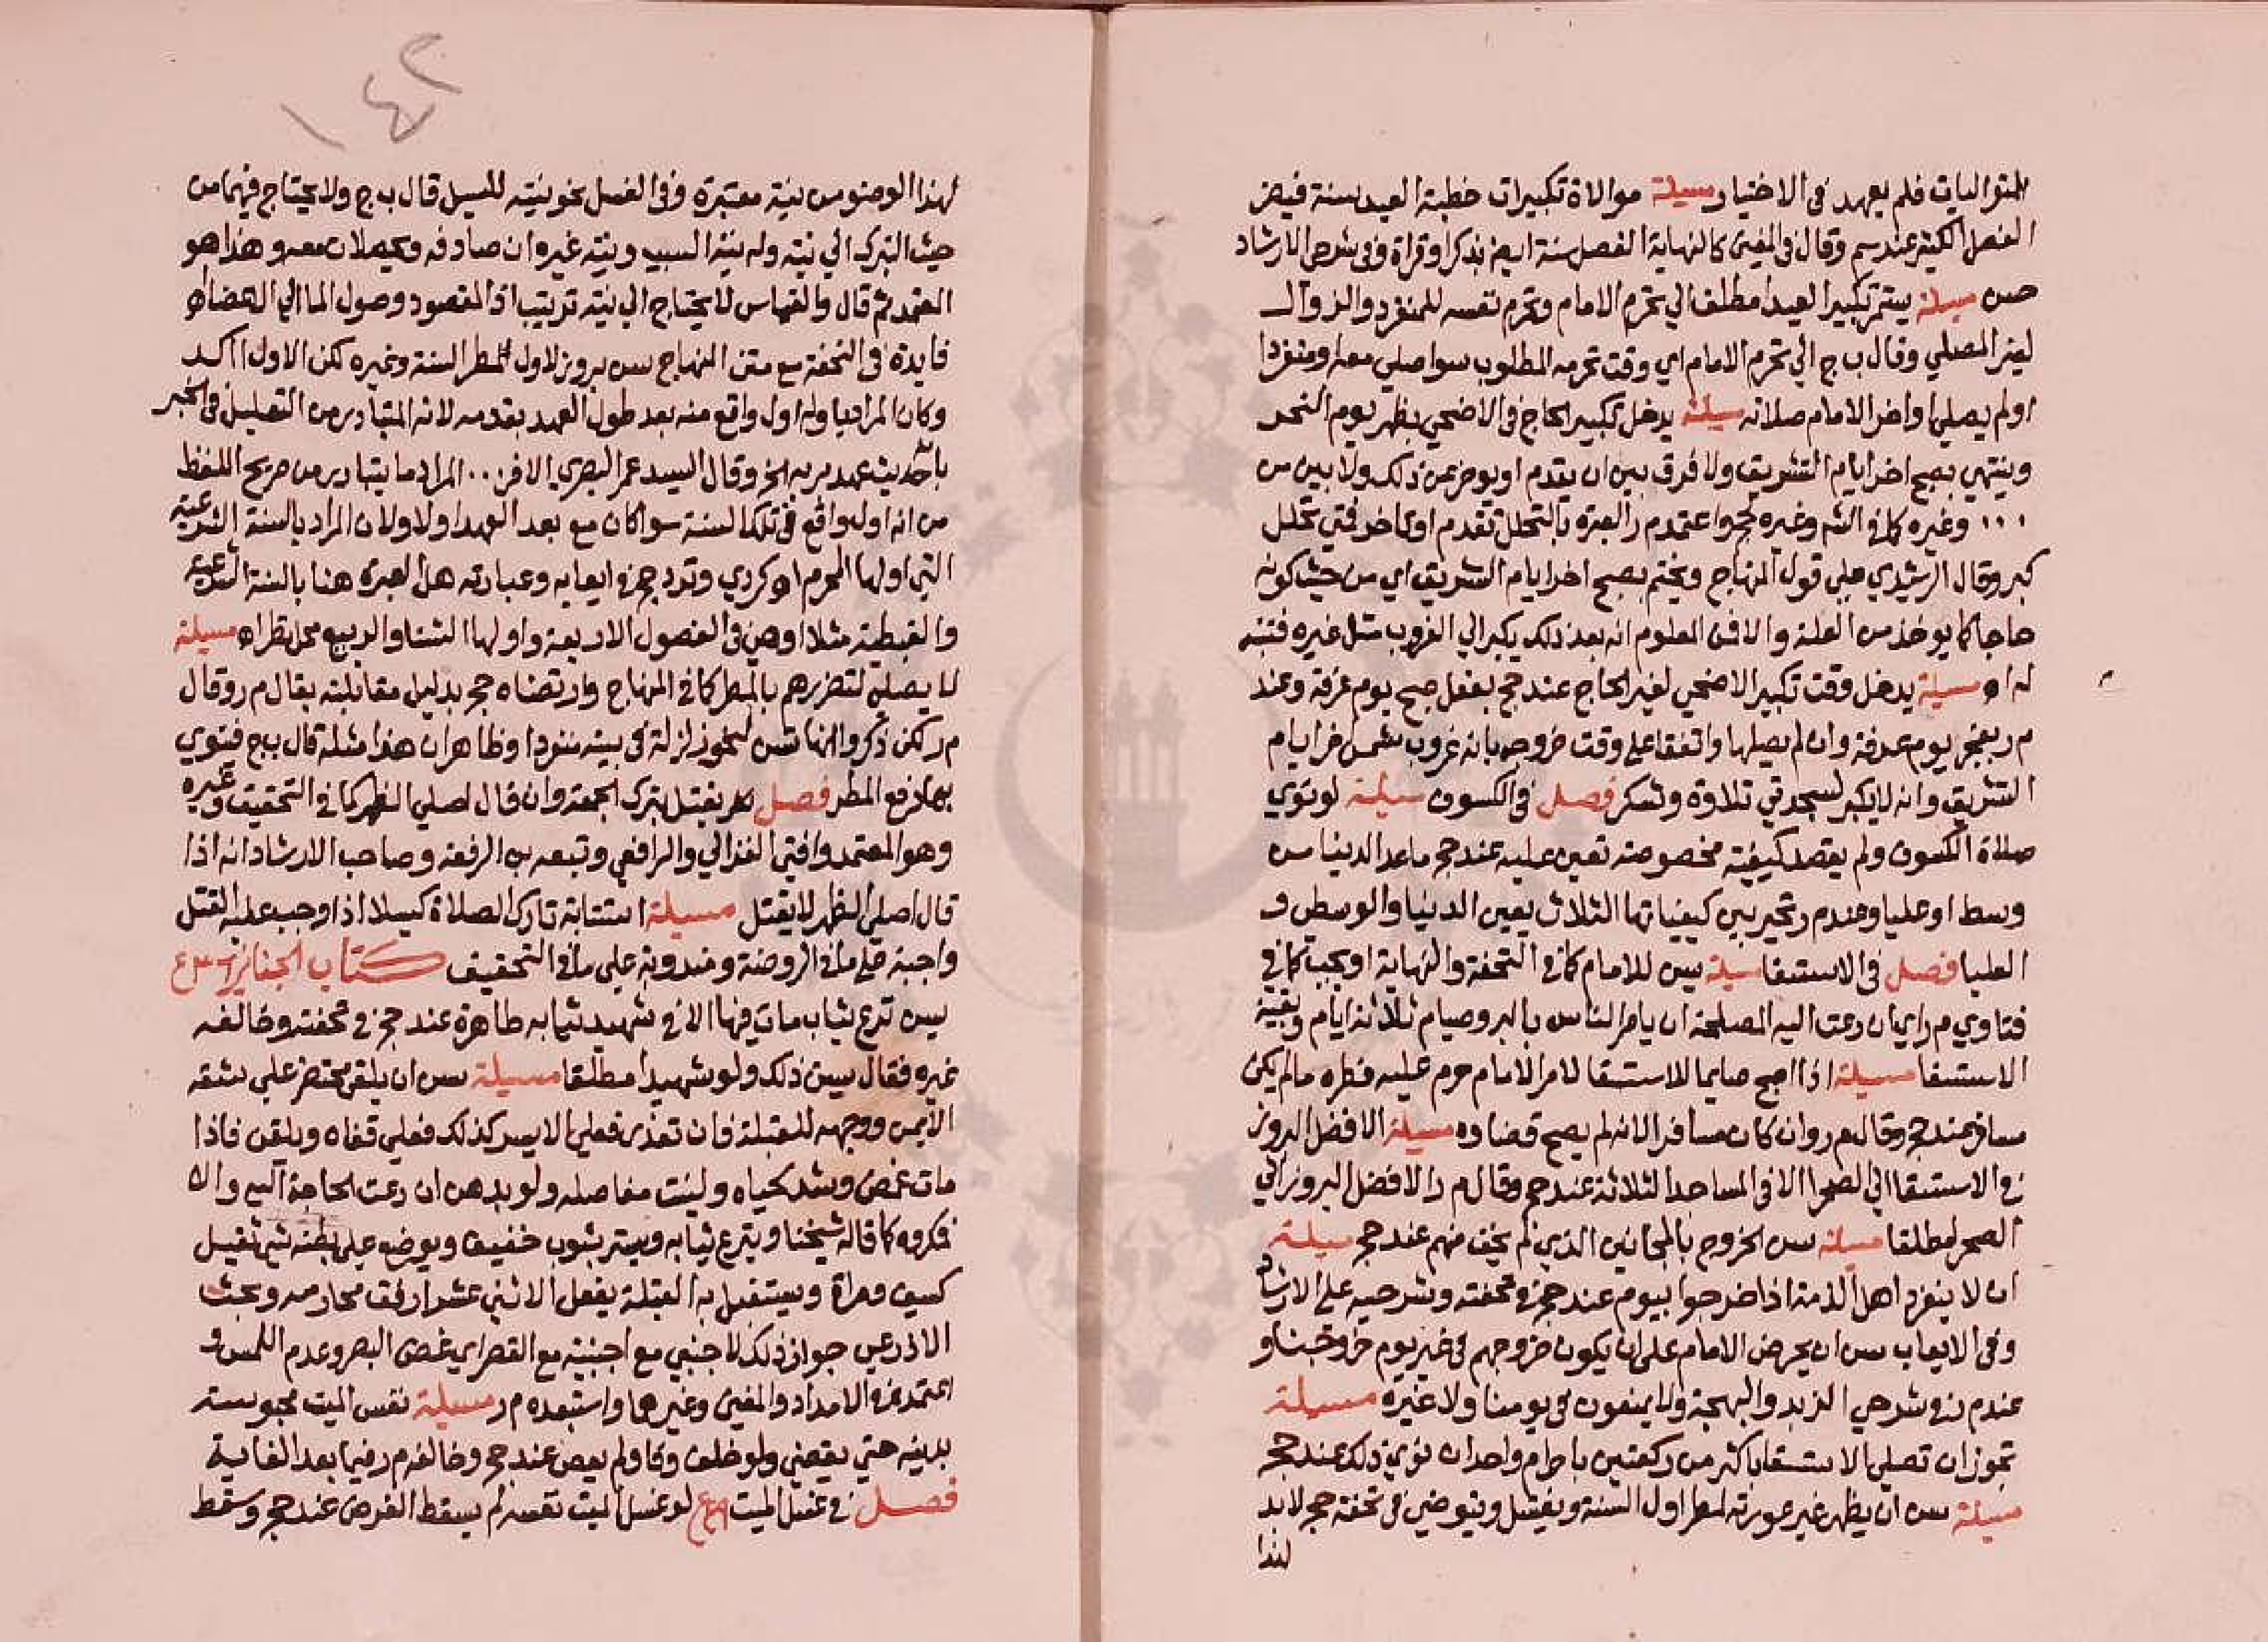 المتواليات فلم يعهد في الاختيار مسيلة موالاة تكبيرات خطبة العيد سنة فيضر
الفصل الكثير عند سم وقال في المغني كالنهاية الفصل سنة ايضا بذكر او قراة وفي شرحي الارشاد
حسن مسيلة يستمر تكبير العيد مطلقا الي تحرم الامام وتحرم نفسه للمنفرد والزوال
لغير المصلي وقال ب ج الي تحرم الامام اي وقت تحرمه المطلوب سوا صلي معه او منفردا
او لم يصلي او اخر الامام صلاته مسيلة يدخل تكبير الحاج في الاضحي بظهر يوم النحر
وينتهي بصبح اخر ايام التشريق ولا فرق بين ان يقدم او يوخر عن ذلك ولا بين من
وغيره كما في التم وغيره لحج واعتمد م ر العبرة بالتحلل تقدم او تاخر فمتي تحلل
كبر وقال الرشيدي علي قول المنهاج ويختم بصبح اخر ايام التشريق اي من حيث كونه
حاجا كما يوخذ من العلة والا فمن المعلوم انه بعد ذلك يكبر الي الغروب مثل غيره فتنبه
له اه مسيلة يدخل وقت تكبير الاضحي لغير الحاج عند حج بفعل صبح يوم عرفة وعند
م ر بفجر يوم عرفة وان لم يصلها واتفقا علي وقت خروجه بانه غروب شمس اخر ايام
التشريق وانه لا يكبر لسجدتي تلاوة وشكر فصل في الكسوف مسيلة لو نوي
صلاة الكسوف ولم يقصد كيفية مخصوصة تعين عليه عند حج ما عدا الدنيا من
وسط او عليا وعند م ر تخير بين كيفياتها الثلاث يعين الدنيا والوسطى و
العليا فصل في الاستسقا مسيلة يسن للامام كما في التحفة والنهاية او يجب كما في
فتاوي م ر اي ان دعت اليه المصلحة ان يامر الناس بالبر وصيام ثلاثة ايام وبقية
الاستسقا مسيلة اذا اصبح صايما للاستسقا لامر الامام حرم عليه فطره ما لم يكن
مسافر عند حج وقال م ر وان كان مسافر الانه لم يصح قضاوه مسيلة الافضل البروز
في الاستسقا الي الصحرا الا في المساجد الثلاثة عند حج وقال م ر الافضل البروز الي
الصحرا مطلقا مسيلة يسن الخروج بالمجانين الذي لم يخف منهم عند حج مسيلة
ان لا ينفرد اهل الذمة اذا خرجوا بيوم عند حج في تحفته وشرحيه علي الارشاد
وفي الايعاب يسن ان يحرض الامام على ان يكون خروجهم في غير يوم خروجنا و
عند م ر في شرحي الزبد والبهجة ولا يمنعون في يومنا ولا غيره مسيلة
تجوز ان تصلي الاستسقا باكثر من ركعتين باحرام واحد ان نوي ذلك عند حج
مسيلة يسن ان يظهر غير عورته لمطر اول السنة ويغتسل ويتوضي في تحفة حج لا بد
لهذا
١٤٢
لهذا الوضو من نية معتبرة وفي الغسل نحو نيته للسيل قال ب ج ولا يحتاج فيهما من
حيث التبرك الي نية وله نية السبب ونية غيره ان صادفه ويحصلان معه وهذا هو
المعتمد ثم قال والغماس لا يحتاج الي نية ترتيب اذ المقصود وصول الما الي الاعضا اه
فايدة في التحفة مع متن المنهاج يسن بروز لاول المطر السنة وغيره لكن الاول اكد
وكان المراد باوله اول واقع منه بعد طول العهد بعدمه لانه المتبادر من التعليل في الخبر
بانه حديث عهد بربه الخ وقال السيد عمر البصري المراد ما يتبادر من صريح اللفظ
من انه اوله واقع في تلك السنة سوا كان مع بعد العهد اولا ولان المراد بالسنة الشرعية
التي اولها المحرم اه كردي وتردد حج في ايعابه وعبارته هل العبرة هنا بالسنة الشرعية
والقبطية مثلا او هي في الفصول الاربعة واولها الشتا والربيع محل نظر اه مسيلة
لا يصلي لتضررهم بالمطر كما في المنهاج وارتضاه حج بدليل مقابلته بقال م ر وقال
م ر لكن ذكروا انها تسن لنحو زلزلة في بيته منفردا وظاهر ان هذا مثله قال ب ج فينوي
بها رفع المطر فصل يقتل بترك الجمعة وان قال اصلي الظهر كما في التحقيق وغيره
وهو المعتمد وافتي الغزالي والرافعي وتبعه بن الرفعة وصاحب الارشاد انه اذا
قال اصلي الظهر لا يقتل مسيلة استتابة تارك الصلاة كسلا اذا وجب عليه القتل
واجبة علي ما في الروضة ومندوبة علي ما في التحقيق كتاب الجنايز
يسن نزع ثياب مات فيها الا في شهيد ثيابه طاهرة عند حج في تحفته وخالفه
غيره فقال يسن ذلك ولو شهيدا مطلقا مسيلة يسن ان يلقى محتضر علي شقه
الايمن ووجهه للقبلة فان تعذر فعلي الايسر كذلك فعلي قفاه ويلقن فاذا
مات غمض وشد لحياه ولينت مفاصله ولو بدهن ان دعت الحاجة اليه والا
فكروه كما قاله شيخنا وينزع ثيابه ويستر بثوب خفيف ويوضع علي بطنه شي ثقيل
كسيف ومراة ويستقبل به القبلة يفعل الاثني عشر ارفق محارمه وبحث
الاذرعي جواز ذلك لاجنبي مع اجنبية مع القصر اي غض البصر وعدم اللمس و
اعتمده في الامداد والمغني وغيرهما واستبعده م ر مسيلة نفس الميت محبوسة
بدينه حتي يقضي ولو خلف وفا ولم يعص عند حج وخالفه م ر فيما بعد الغاية
فصل في غسل الميت لو غسل الميت نفسه لم يسقط الفرض عند حج وسقط